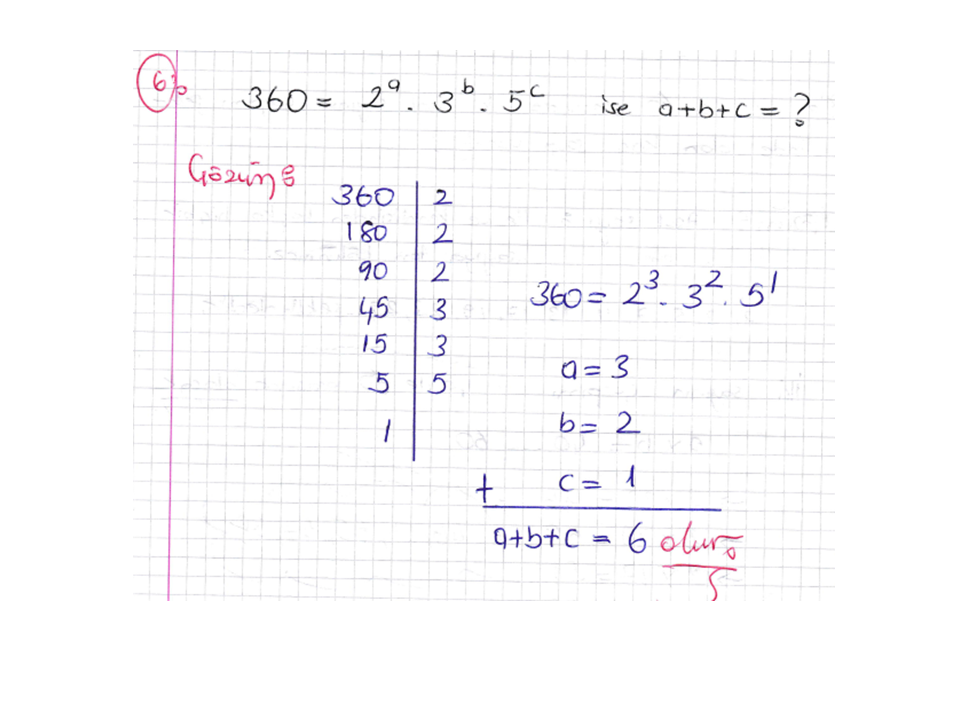 6) 360 = 2^a . 3^b . 5^c ise a+b+c = ?
Çözüm:
360 | 2
180 | 2
90 | 2
45 | 3
15 | 3
5 | 5
1 |
360 = 2^3 . 3^2 . 5^1
a = 3
b = 2
+ c = 1
a+b+c = 6 olur.